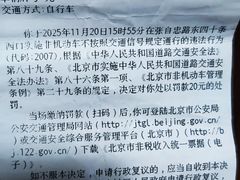 交通方式:自行车
你于2025年11月20日15时55分在张自忠路东四十条
西口实施非机动车不按照交通信号规定通行的违法行为
(代码:2007),根据《中华人民共和国道路交通安全法》
第八十九条、《北京市实施中华人民共和国道路交通安全
法办法》第八十六条第一项、《北京市非机动车管理条
例》第二十九条的规定,决定对你处以罚款20元的处
罚。
当场缴纳罚款(扫码)后,你可登陆北京市公安局
公安交通管理局网站(http://jtgl.beijing.gov.cn
)或交通安全综合服务管理平台(北京市)(http://b
j.122.gov.cn/)下载《北京市非税收入统一票据(电
子)》。
如不服本决定,申请行政复议的,应当自收到本决